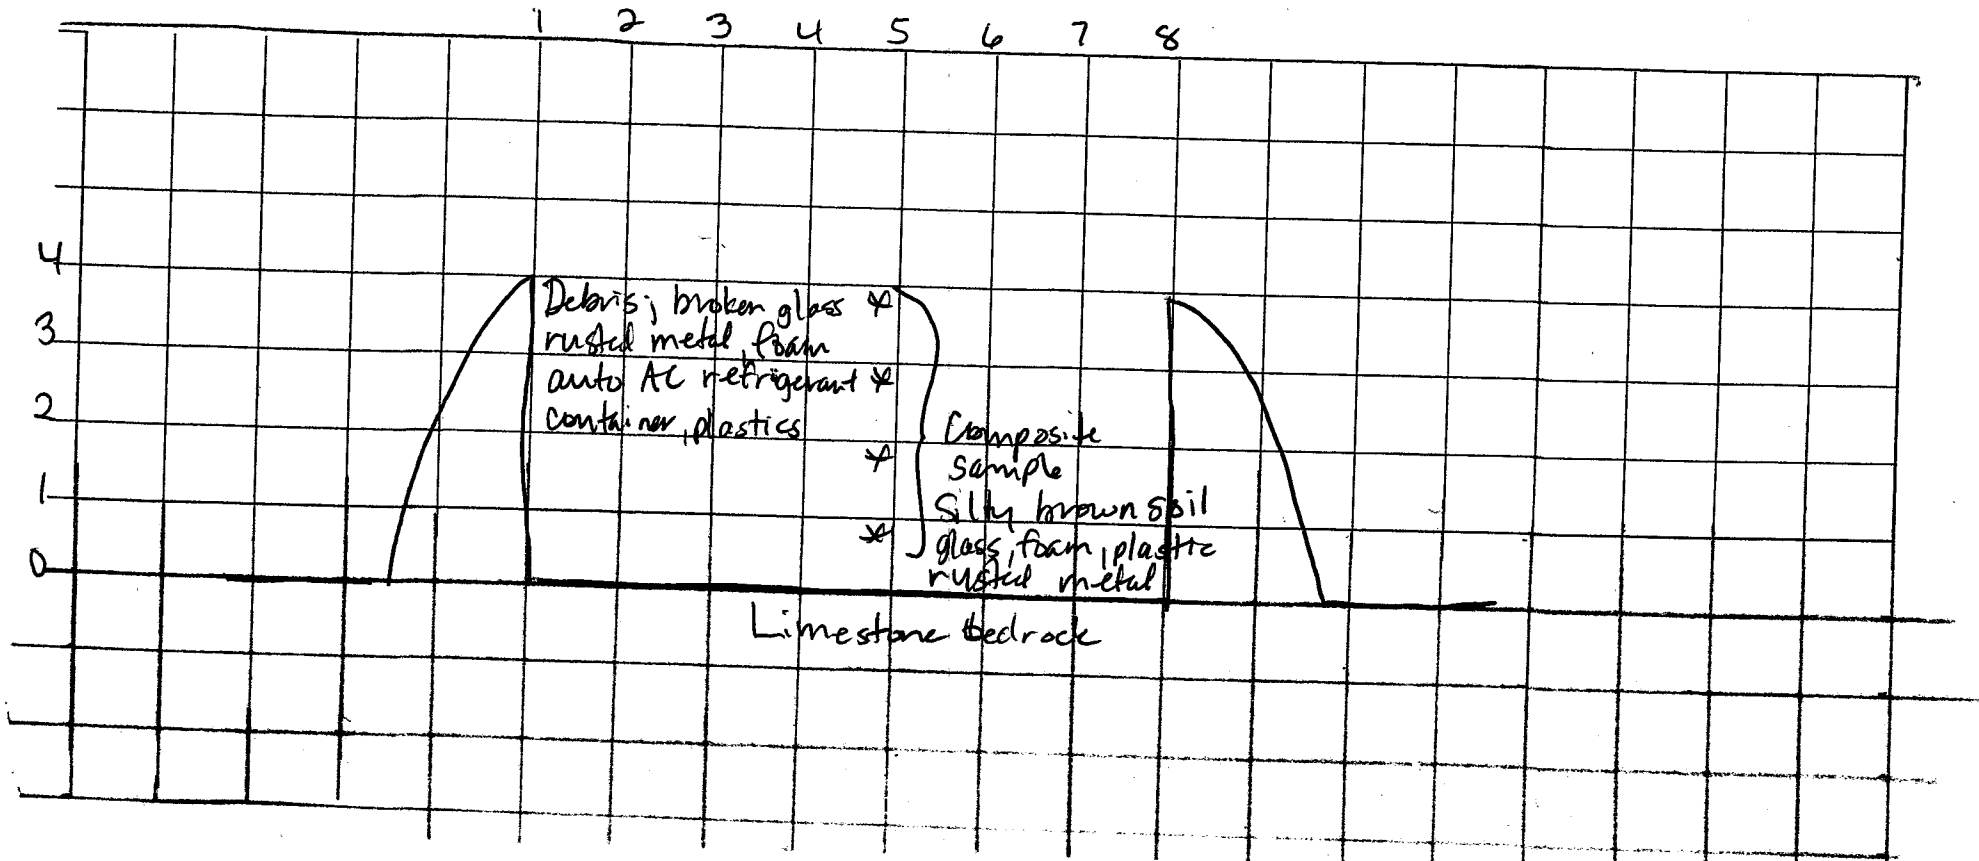 1 2 3 4 5 6 7 8
4
3
2
1
0
Debris; broken glass
rusted metal, foam
auto AC refrigerant
container, plastics
*
*
*
*
Composite
sample
Silty brown soil
glass, foam, plastic
rusted metal
Limestone bedrock